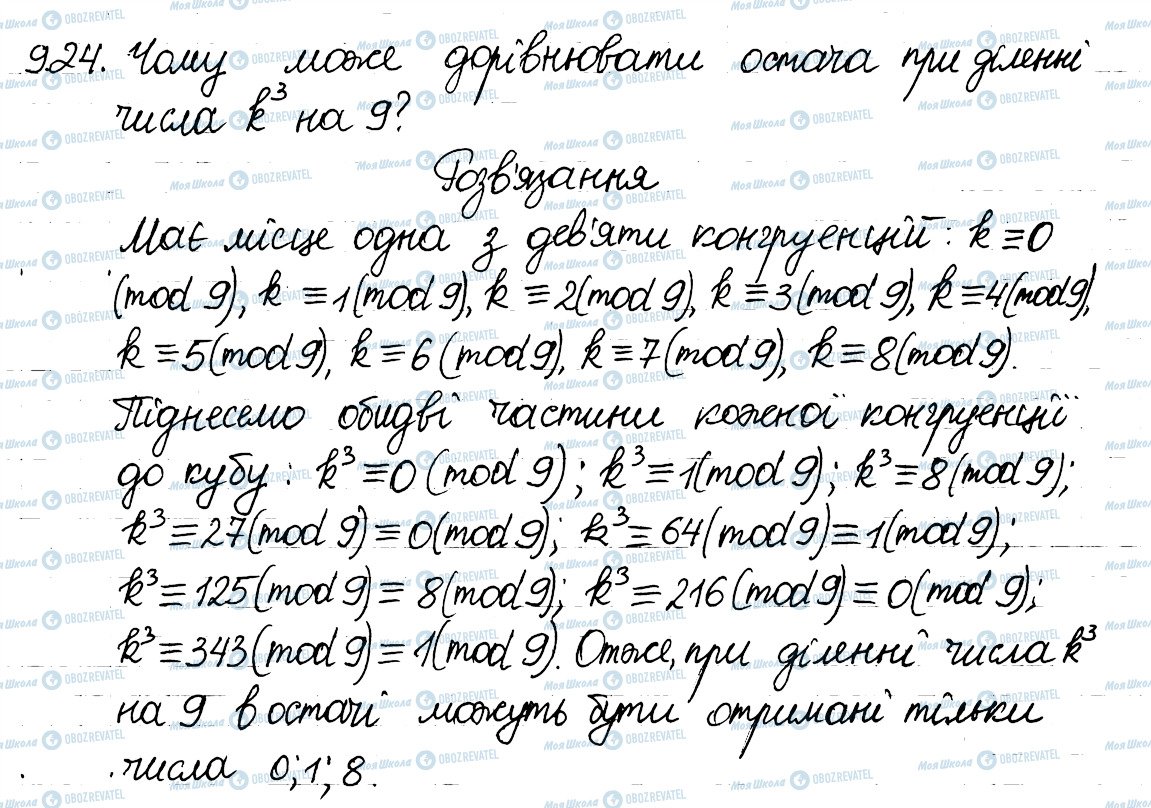 924. Чому може дорівнювати остача при діленні
числа k³ на 9?
Розв'язання
Має місце одна з дев'яти конгруенцій: k ≡ 0
(mod 9), k ≡ 1 (mod 9), k ≡ 2 (mod 9), k ≡ 3 (mod 9), k ≡ 4 (mod 9),
k ≡ 5 (mod 9), k ≡ 6 (mod 9), k ≡ 7 (mod 9), k ≡ 8 (mod 9).
Піднесемо обидві частини кожної конгруенції
до кубу: k³ ≡ 0 (mod 9); k³ ≡ 1 (mod 9); k³ ≡ 8 (mod 9);
k³ ≡ 27 (mod 9) ≡ 0 (mod 9); k³ ≡ 64 (mod 9) ≡ 1 (mod 9);
k³ ≡ 125 (mod 9) ≡ 8 (mod 9); k³ ≡ 216 (mod 9) ≡ 0 (mod 9);
k³ ≡ 343 (mod 9) ≡ 1 (mod 9). Отже, при діленні числа k³
на 9 в остачі можуть бути отримані тільки
числа 0; 1; 8.